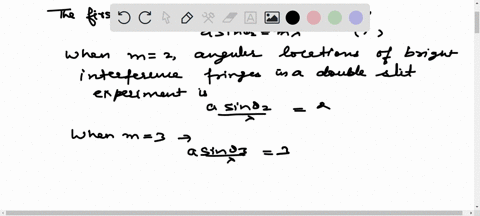 The firs
a sinθ₂ = mλ
When m=2, angular locations of bright
interference fringes in a double slit
experiment is
a sinθ2 / λ = 2
When m=3 →
a sinθ3 / λ = 3